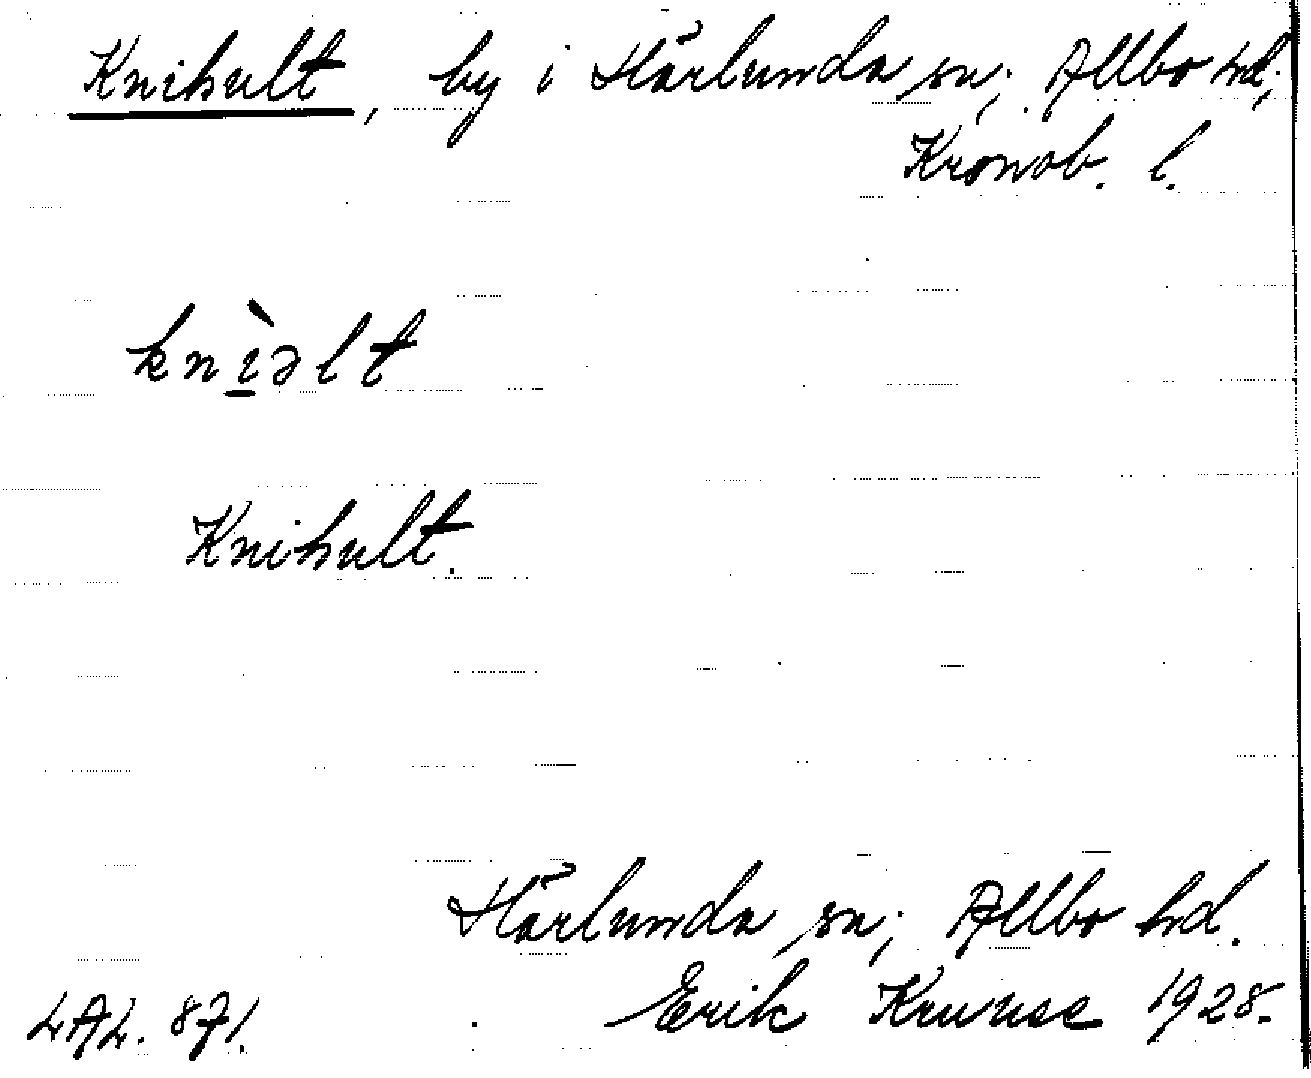 Knihult, by i Härlunda sn; Allbo hd;
Kronob. l.
knìəlt
Knihult.
Härlunda sn; Allbo hd.
LAL. 871. Erik Kruuse 1928.